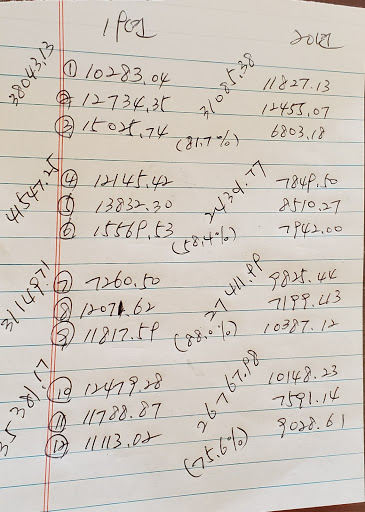 19년 20년
38043.13
① 10283.04 31085.38 11827.13
② 12734.35 12455.07
③ 15025.74 (81.7%) 6803.18
41547.25
④ 12145.42 24301.77 7849.50
⑤ 13832.30 8510.27
⑥ 15569.53 (58.4%) 7942.00
31149.71
⑦ 7260.50 27411.99 9825.44
⑧ 12071.62 7199.43
⑨ 11817.59 (88.0%) 10387.12
35381.17
⑩ 12479.28 26767.98 10148.23
⑪ 11788.87 7591.14
⑫ 11113.02 (75.6%) 9028.61